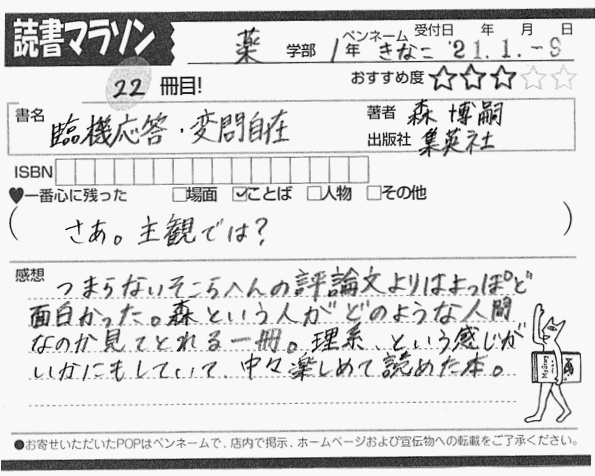 読書マラソン
薬 学部 1年 ペンネーム きなこ 受付日 年 月 日 '21.1.-8
22 冊目! おすすめ度 ★★★☆☆
書名 臨機応答・変問自在
著者 森 博嗣
出版社 集英社
ISBN
♥一番心に残った □場面 ☑ことば □人物 □その他
( さあ。主観では? )
感想
つまらないそこらへんの評論文よりはよっぽど
面白かった。森という人がどのような人間
なのか見てとれる一冊。理系、という感じが
いかにもしていて、中々楽しめて読めた本。
●お寄せいただいたPOPはペンネームで、店内で掲示、ホームページおよび宣伝物への転載をご了承ください。